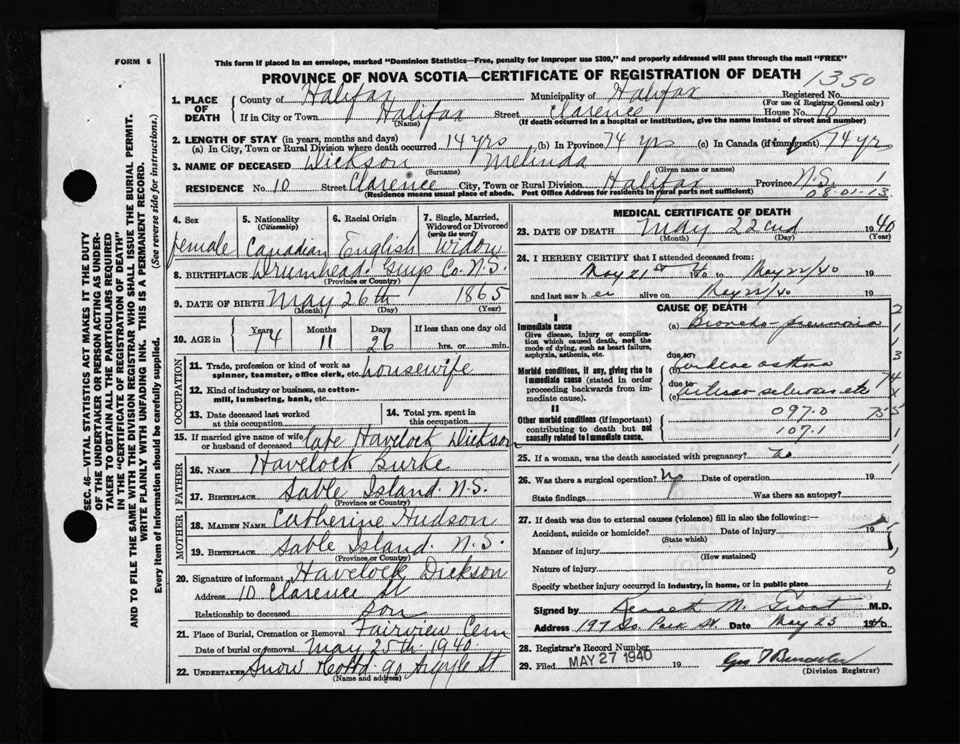 FORM 6
This form if placed in an envelope, marked "Dominion Statistics—Free, penalty for improper use $300," and properly addressed will pass through the mail "FREE"
PROVINCE OF NOVA SCOTIA—CERTIFICATE OF REGISTRATION OF DEATH
1350
1. PLACE OF DEATH
County of Halifax Municipality of Halifax Registered No.
(For use of Registrar General only)
If in City or Town Halifax Street Clarence House No. 10
(Name) (If death occurred in a hospital or institution, give the name instead of street and number)
2. LENGTH OF STAY (in years, months and days)
(a) In City, Town or Rural Division where death occurred 14 yrs (b) In Province 74 yrs (c) In Canada (if immigrant) 74 yr
3. NAME OF DECEASED Dickson Melinda
(Surname) (Given name or names)
RESIDENCE No. 10 Street Clarence City, Town or Rural Division Halifax Province N.S. 1
(Residence means usual place of abode. Post Office Address for residents in rural parts not sufficient) 08-01-13
4. Sex female
5. Nationality (Citizenship) Canadian
6. Racial Origin English
7. Single, Married, Widowed or Divorced (write the word) Widow
8. BIRTHPLACE Drumhead. Guys Co. N.S.
(Province or Country)
9. DATE OF BIRTH May 26th 1865
(Month) (Day) (Year)
10. AGE in Years 74 Months 11 Days 26 If less than one day old
hrs. or min.
OCCUPATION
11. Trade, profession or kind of work as spinner, teamster, office clerk, etc. housewife
12. Kind of industry or business, as cotton-mill, lumbering, bank, etc.
13. Date deceased last worked at this occupation
14. Total yrs. spent in this occupation
15. If married give name of wife or husband of deceased late Havelock Dickson
FATHER
16. NAME Havelock Burke
17. BIRTHPLACE Sable Island. N.S.
(Province or Country)
MOTHER
18. MAIDEN NAME Catherine Hudson
19. BIRTHPLACE Sable Island N.S.
(Province or Country)
20. Signature of informant Havelock Dickson
Address 10 Clarence St
Relationship to deceased Son
21. Place of Burial, Cremation or Removal Fairview Cem
Date of burial or removal May 25th 1940
22. UNDERTAKER Snow & Co Ltd 90 Argyle St
(Name and address)
MEDICAL CERTIFICATE OF DEATH
23. DATE OF DEATH May 22nd 1940
(Month) (Day) (Year)
24. I HEREBY CERTIFY that I attended deceased from:
May 21st 40 to May 22/40 19
and last saw her alive on May 22/40 19
CAUSE OF DEATH
I
Immediate cause
Give disease, injury or complication which caused death, not the mode of dying, such as heart failure, asphyxia, asthenia, etc.
(a) Broncho-pneumonia
due to
Morbid conditions, if any, giving rise to immediate cause (stated in order proceeding backwards from immediate cause).
(b) asthma
due to
(c)
II
Other morbid conditions (if important) contributing to death but not causally related to immediate cause.
097.0
107.1
25. If a woman, was the death associated with pregnancy? no
26. Was there a surgical operation? no Date of operation 19
State findings Was there an autopsy?
27. If death was due to external causes (violence) fill in also the following:—
Accident, suicide or homicide? Date of injury 19
(State which)
Manner of injury
(How sustained)
Nature of injury
Specify whether injury occurred in industry, in home, or in public place
Signed by Kenneth M. Grant M.D.
Address 197 So. Park St. Date May 23 1940
28. Registrar's Record Number
29. Filed MAY 27 1940 19
(Division Registrar)
SEC. 46—VITAL STATISTICS ACT MAKES IT THE DUTY OF THE UNDERTAKER OR PERSON ACTING AS UNDERTAKER TO OBTAIN ALL THE PARTICULARS REQUIRED IN THE "CERTIFICATE OF REGISTRATION OF DEATH" AND TO FILE THE SAME WITH THE DIVISION REGISTRAR WHO SHALL ISSUE THE BURIAL PERMIT.
WRITE PLAINLY WITH UNFADING INK. THIS IS A PERMANENT RECORD.
Every item of Information should be carefully supplied. (See reverse side for instructions.)